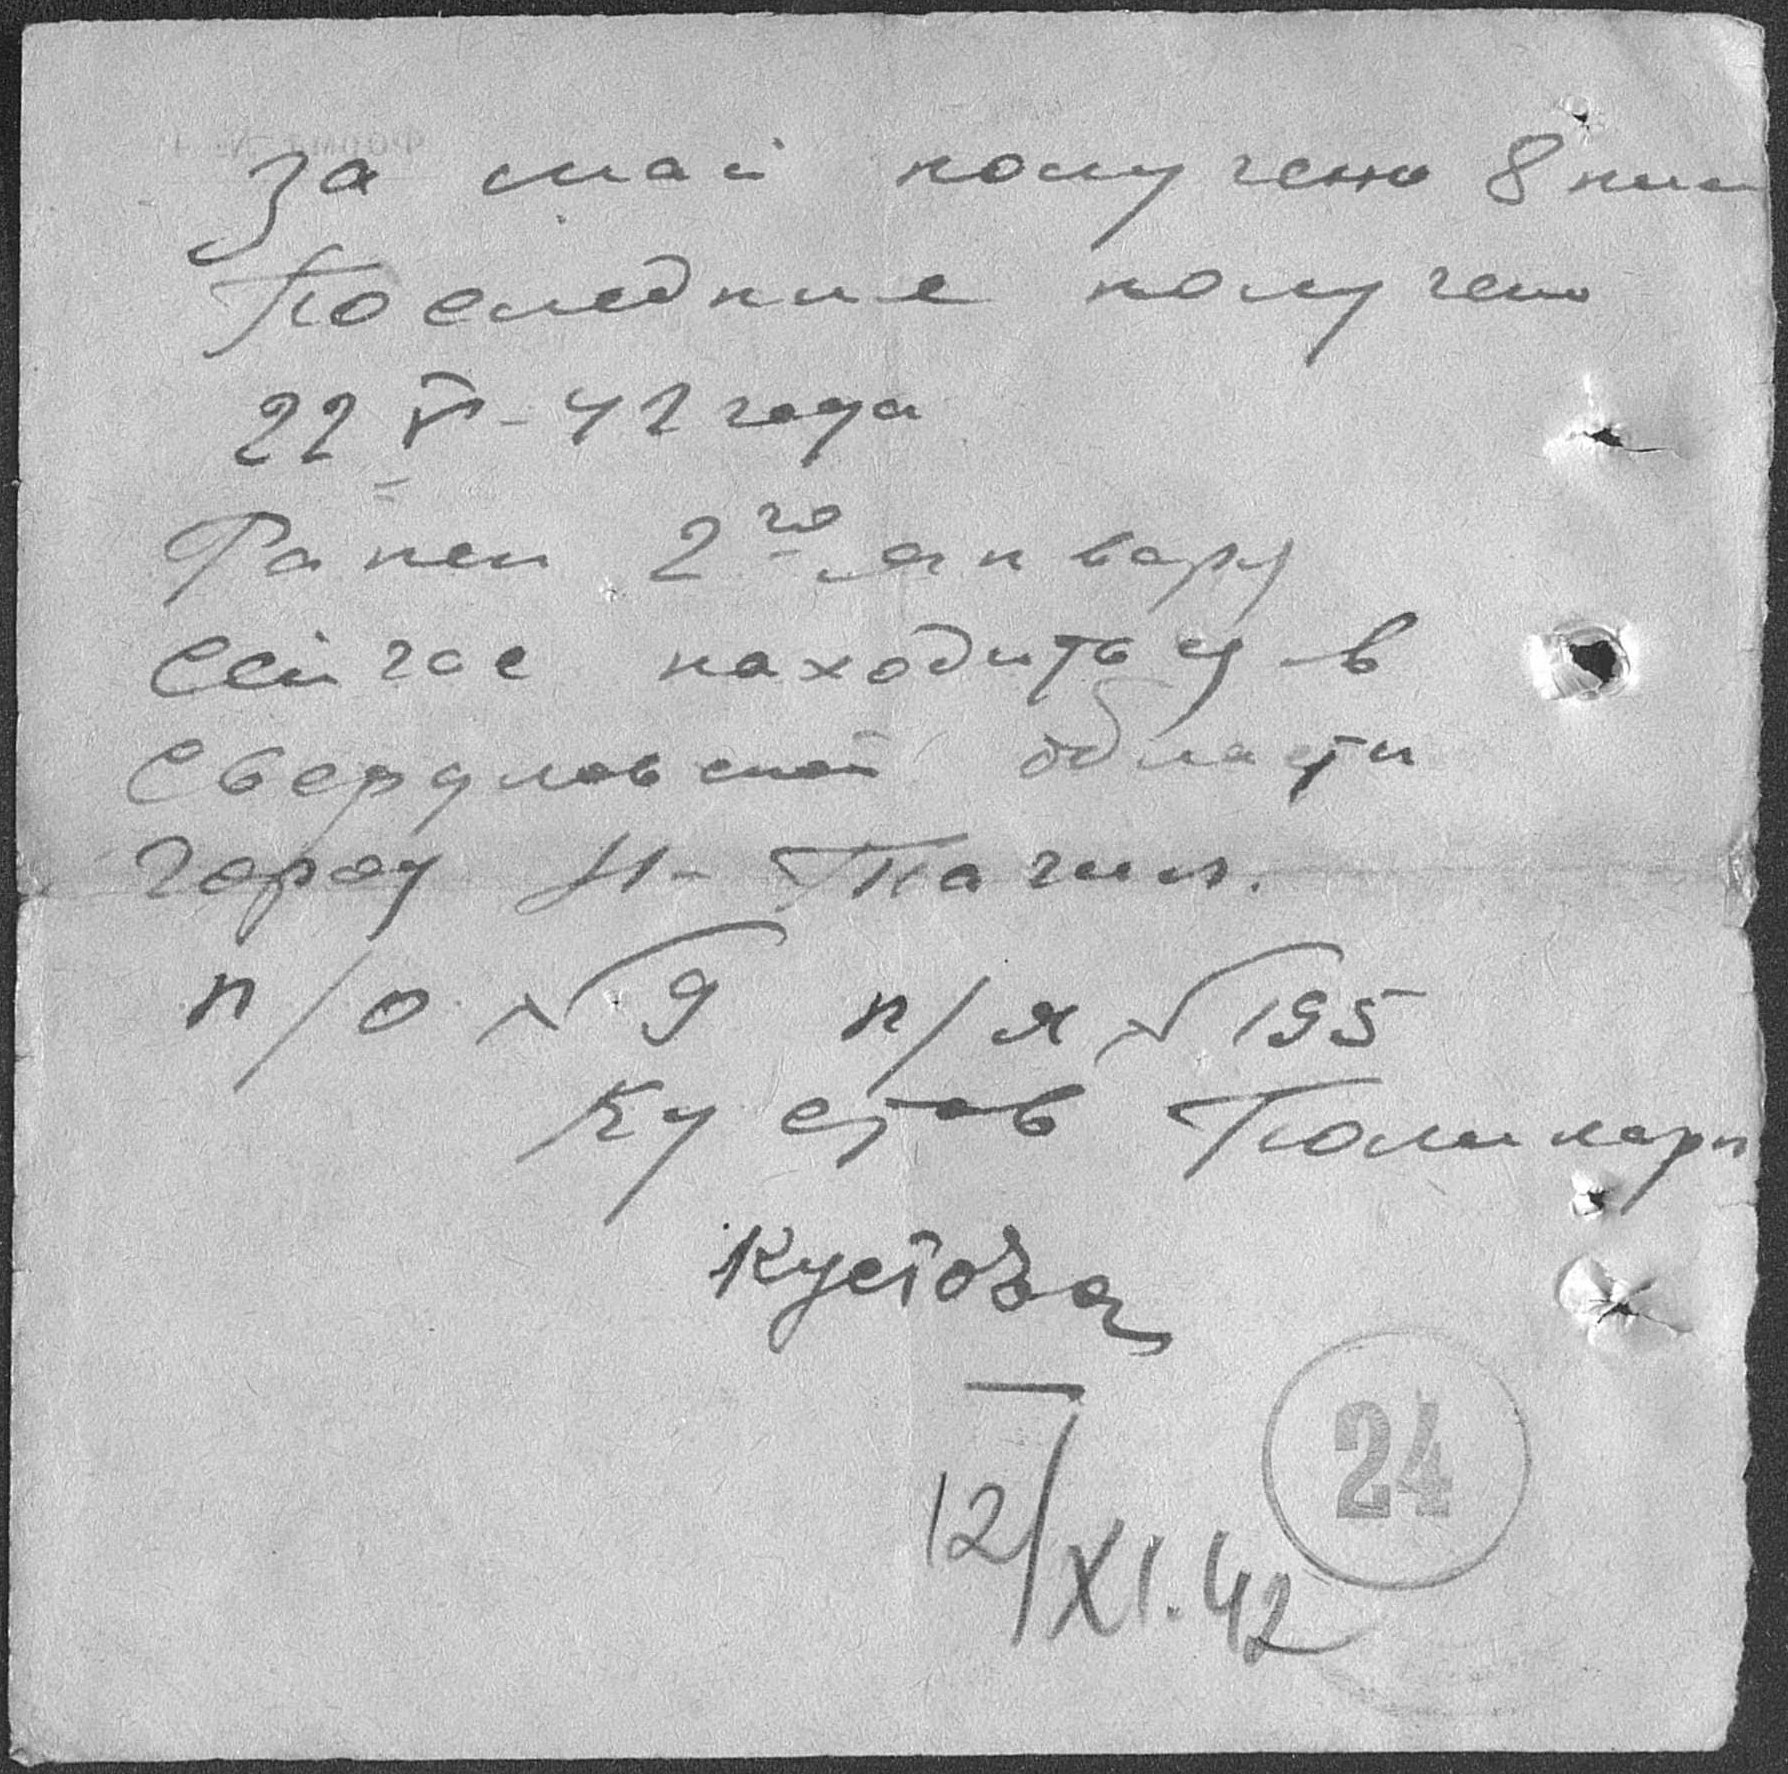 За май получено 8 пис
Последние получено
22 V - 42 года
Ранен 2го января
Сейчас находиться в
Свердловской области
город Н-Тагил.
п/о № 9 п/я № 195
Кустов Поликарп
Кустова
12/XI.42
24